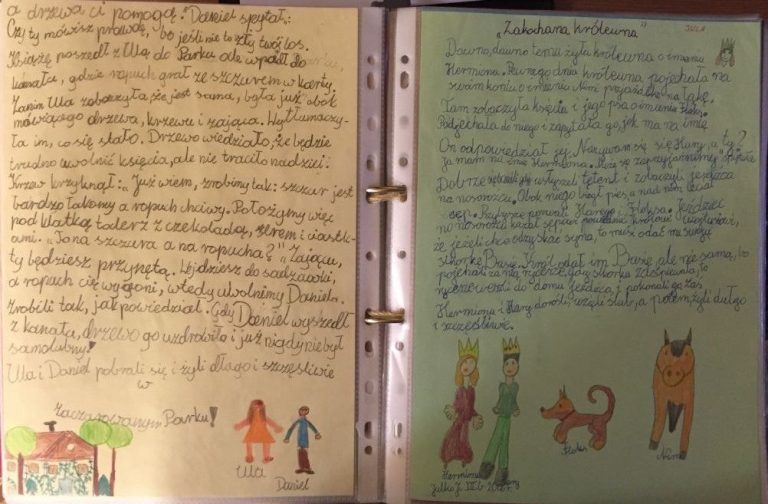 a drzewa ci pomogą." Daniel spytał:
Czy ty mówisz prawdę, bo jeśli nie to zły twój los.
Książę poszedł z Ulą do Parku ale wpadł do
kanału, gdzie ropuch grał ze szczurem w karty.
Zanim Ula zobaczyła, że jest sama, była już obok
mówiącego drzewa, krzewu i zająca. Wytłumaczy-
ła im, co się stało. Drzewo wiedziało, że będzie
trudno uwolnić księcia, ale nie traciło nadziei.
Krzew krzyknął: "Już wiem, zrobimy tak: szczur jest
bardzo łakomy a ropuch chciwy. Położymy więc
pod klatką talerz z czekoladą, serem i ciastk-
ami. "To na szczura a na ropucha?" "Zającu,
ty będziesz przynętą. Wejdziesz do sadzawki,
a ropuch cię wygoni, wtedy uwolnimy Daniela.
Zrobili tak, jak powiedział. Gdy Daniel wyszedł
z kanału, drzewo go uzdrowiło i już nigdy nie był
samolubny!
Ula i Daniel pobrali się i żyli długo i szczęśliwie
w
Zaczarowanym Parku!
Ula
Daniel
"Zakochana królewna"
JULA
Dawno, dawno temu żyła królewna o imieniu
Hermiona. Pewnego dnia królewna pojechała na
swoim koniu o imieniu Nina na łąkę.
Tam zobaczyła księcia i jego psa o imieniu Floks.
Podjechała do niego i zapytała go, jak ma na imię.
On odpowiedział jej: Nazywam się Hany, a ty?
Ja mam na imię Hermiona. Może się zaprzyjaźnimy?
Dobrze usłyszeli tętent i zobaczyli jeźdźca
na nosorożcu. Obok niego biegł pies, a nad nim leciał
sęp. porwali Hanego i Floksa. Jeździec
na nosorożcu kazał sępowi królowi
że jeżeli chce odzyskać syna, to musi oddać mu swoją
sikorkę Busię. Król oddał im Busię, ale nie samą, bo
pojechali za nią rycerze, gdy sikorka zaśpiewała, to
rycerze weszli do domu jeźdźca, i pokonali go
Hermiona i Hany dorośli, wzięli ślub, a potem żyli długo
i szczęśliwie.
Hermiona
Floks
Nina